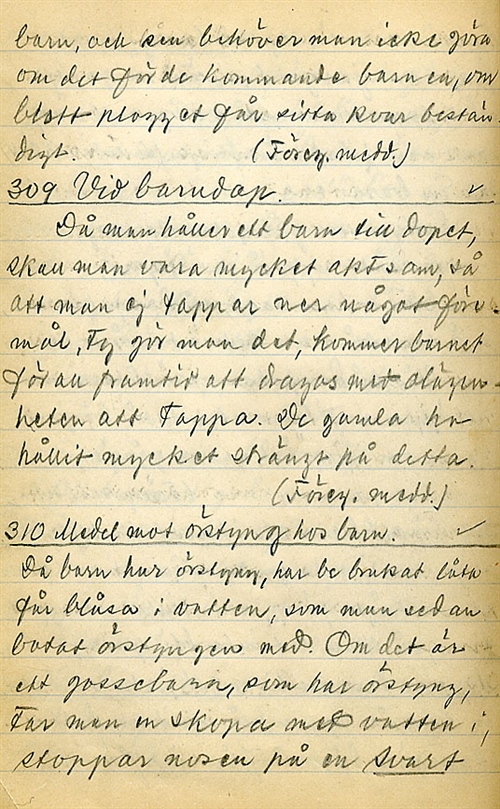 barn, och sen behöver man icke göra
om det för de kommande barnen, om
blott plagget får sitta kvar bestän-
digt. (Föreg. medd.)
309 Vid barndop.
Då man håller ett barn till dopet,
skall man vara mycket aktsam, så
att man ej tappar ner något före-
mål, Ty gör man det, kommer barnet
för all framtid att dragas med olägen-
heten att Tappa. De gamla ha
hållit mycket strängt på detta.
(Föreg. medd.)
310 Medel mot örstyng hos barn.
Då barn har örstyng, har be brukat låta
får blåsa i vatten, som man sedan
botat örstyngen med. Om det är
ett gossebarn, som har örstyng,
Tar man en skopa med vatten i,
stoppar nosen på en svart